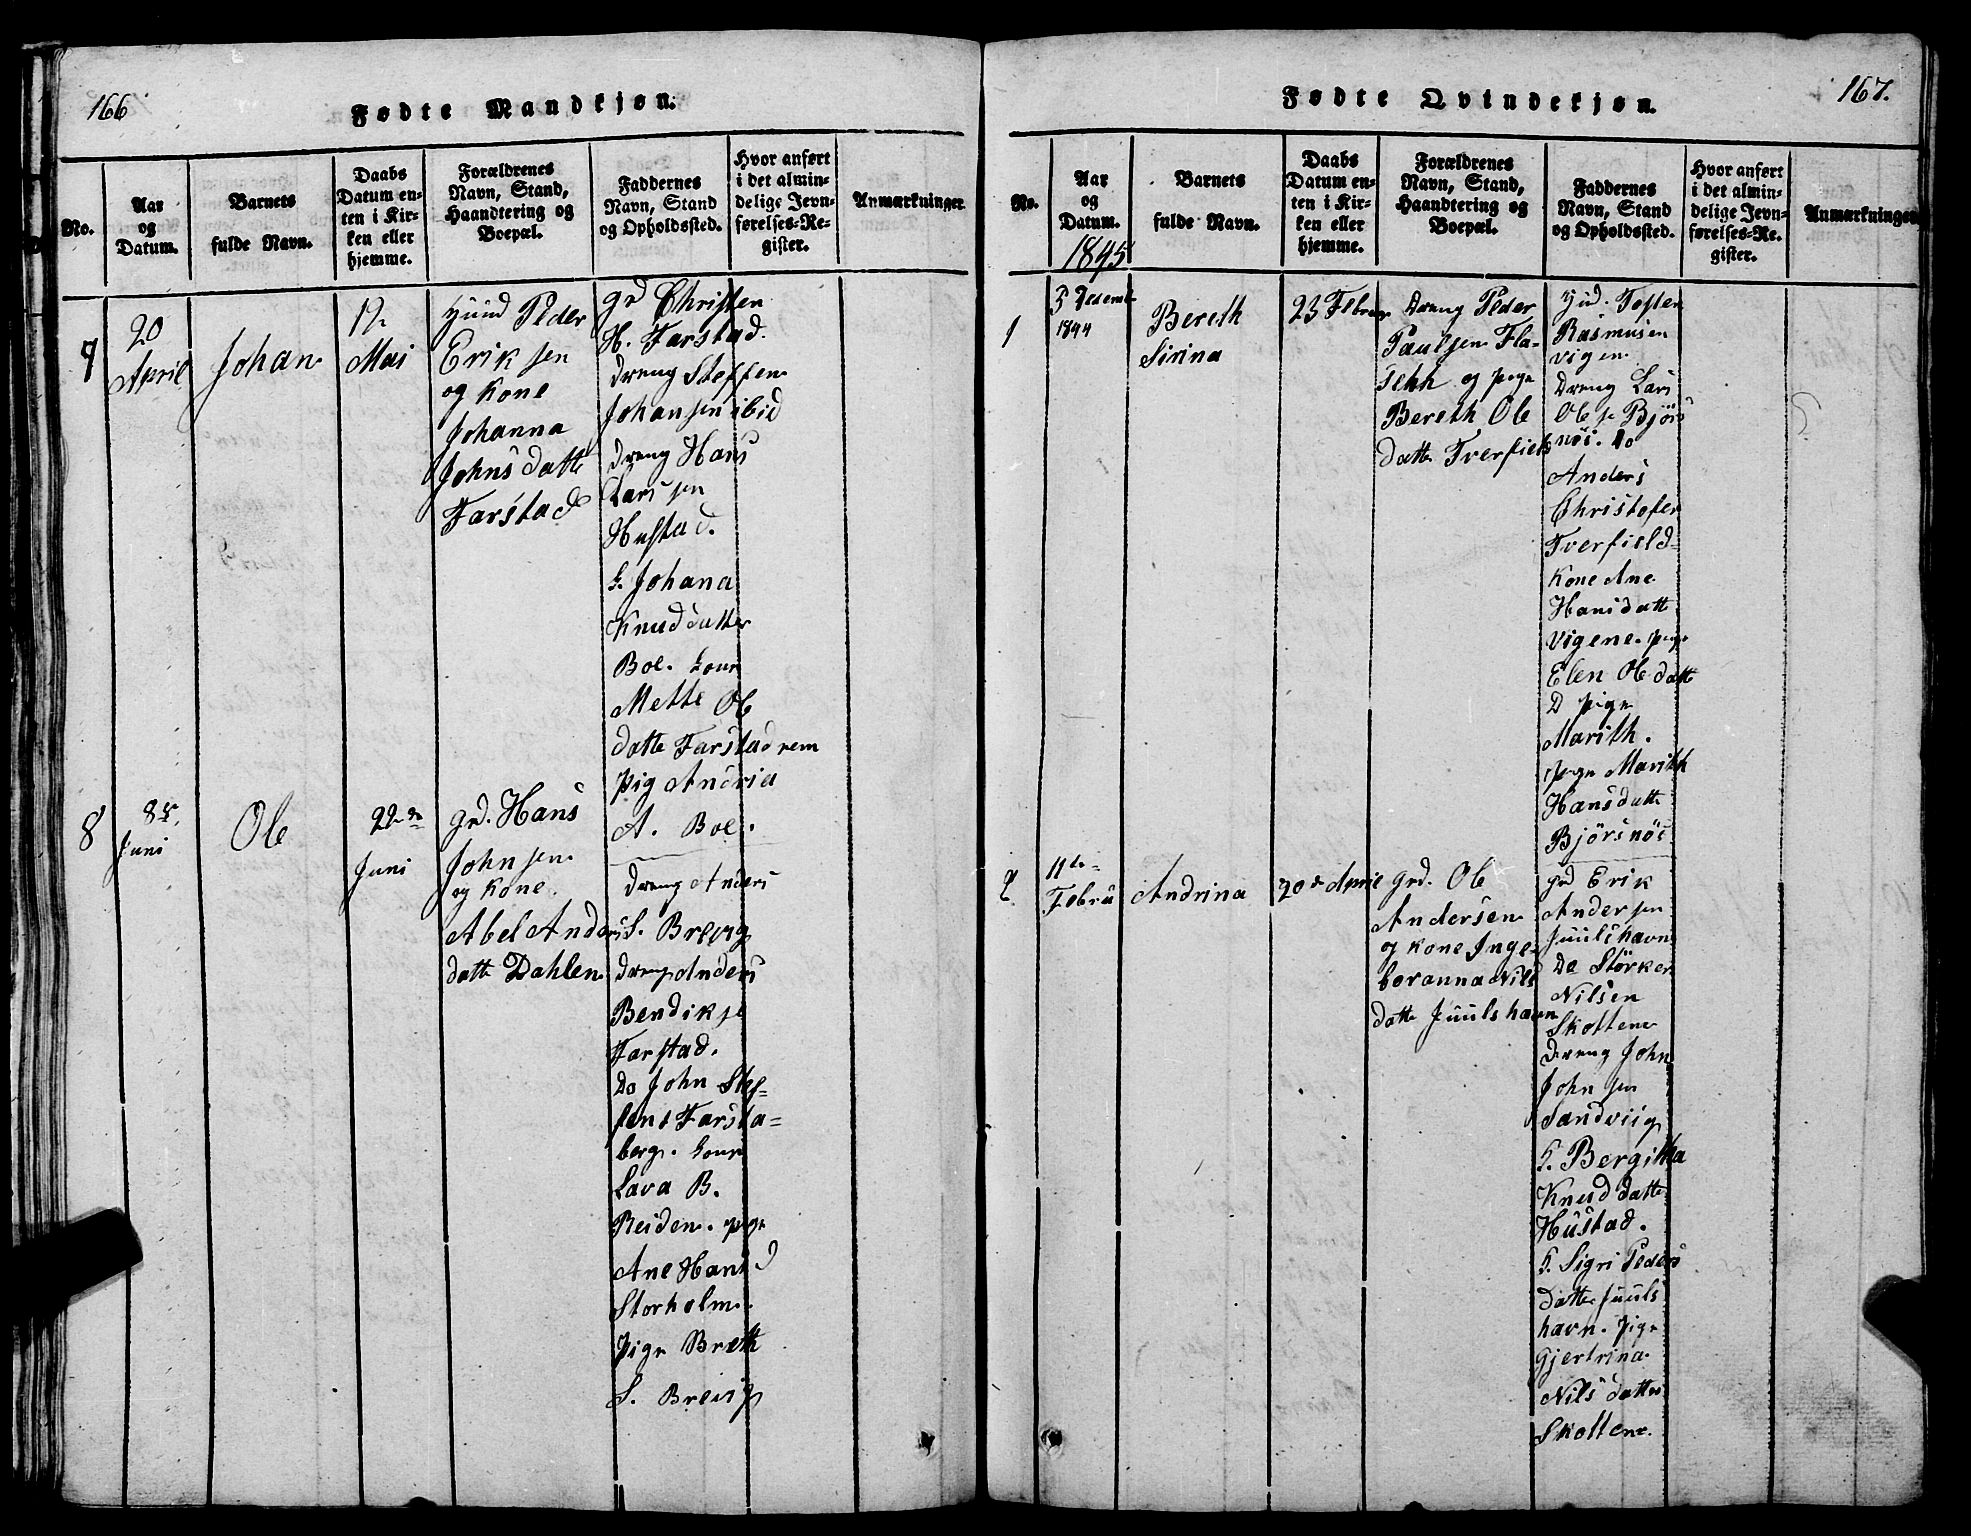 166
Fødte Mandkjøn.
No.
Aar
og
Datum.
Barnets
fulde Navn.
Daabs
Datum en-
ten i Kir-
ken eller
hjemme.
Forældrenes
Navn, Stand,
Haandtering og
Boepæl.
Faddernes
Navn, Stand
og Opholdssted.
Hvor anført
i det almin-
delige Jevn-
førelses-Re-
gister.
Anmærkninger
7
20
April
Johan
Mai
Huusd Peder
Erik sen
og Kone
Johanna
Johns datte
Farstad
grd Christen
H. Farstad.
dreng Steffen
Johan sen ibid
dreng Hans
Lars sen
Hustad.
k. Johana
Knud datter
Boe. kone
Mette Ole
datte Farstad
pig Andria
A. Boe.
8
8de
Juni
Ole
22de
Juni
grd. Hans
John sen
og Kone
Abel Anders
datte Dahlen
dreng Anders
S. Brevig
dreng Anders
Bendik se
Farstad.
Do John Stef-
fens Farsta-
berg. kone
Lava B.
Reiden. pige
Ane Hans d
Storholm.
Pige Breth
S. Brevig
167.
Fødte Qvindekjøn.
No.
Aar
og
Datum.
1845
Barnets
fulde Navn.
Daabs
Datum en-
ten i Kir-
ken eller
hjemme.
Forældrenes
Navn, Stand,
Haandtering og
Boepæl.
Faddernes
Navn, Stand
og Opholdssted.
Hvor anført
i det almin-
delige Jevn-
førelses-Re-
gister.
Anmærkninger
1
3 Desemb
1844
Bereth
Sirina
23 Februar
Dreng Peder
Paulsen Fla-
og pige
Bereth Ole
datte Tverfield
Hud. Tosten
Rasmusen
vigen
Dreng Lars
Ole se Bjørs
nøs. Do
Anders
Christofer
Tverfield
Kone Ane
Hans datte
Vigene. pige
Elen Ole datte
D pige
Marith.
pige Marith
Hans datte
Bjørsnøs
2
11te
Febru
Andrina
20de April
grd. Ole
Andersen
og kone Inge-
boranna Nils
datte Juuls havn
grd Erik
Ander sen
Juuls havn
Do Størker
Nilsen
Skottene
dreng John
John sen
Sandviig
K. Bergitha
Knud datte
Hustad.
K. Sigri Peders
datte Juuls
havn. Pige
Gjertrina
Nils datte
Skottene.